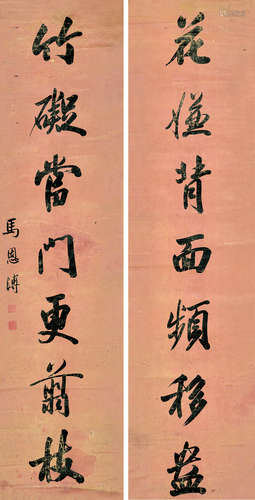 花嫌背面頻移盆
竹礙當門更翦枝
馬恩溥